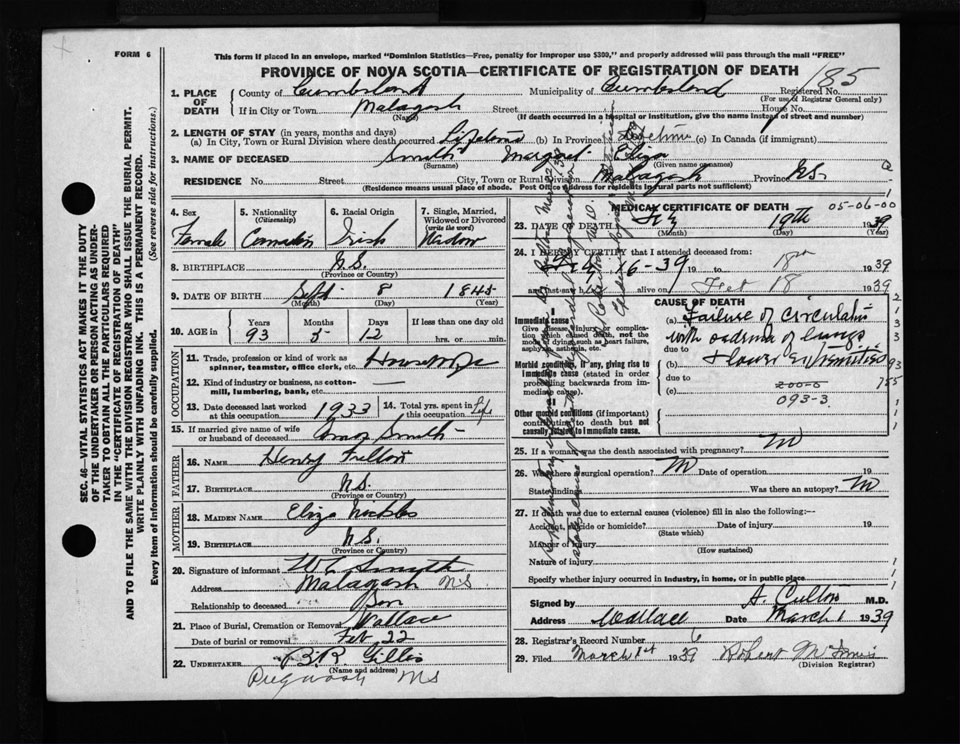 FORM 6
This form if placed in an envelope, marked "Dominion Statistics—Free, penalty for improper use $300," and properly addressed will pass through the mail "FREE"
PROVINCE OF NOVA SCOTIA—CERTIFICATE OF REGISTRATION OF DEATH
185
SEC. 46—VITAL STATISTICS ACT MAKES IT THE DUTY
OF THE UNDERTAKER OR PERSON ACTING AS UNDER-
TAKER TO OBTAIN ALL THE PARTICULARS REQUIRED
IN THE "CERTIFICATE OF REGISTRATION OF DEATH"
AND TO FILE THE SAME WITH THE DIVISION REGISTRAR WHO SHALL ISSUE THE BURIAL PERMIT.
WRITE PLAINLY WITH UNFADING INK. THIS IS A PERMANENT RECORD.
Every item of information should be carefully supplied. (See reverse side for instructions.)
1. PLACE OF DEATH
County of Cumberland Municipality of Cumberland Registered No.
(For use of Registrar General only)
If in City or Town Malagash Street House No.
(Name) (If death occurred in a hospital or institution, give the name instead of street and number)
2. LENGTH OF STAY (in years, months and days)
(a) In City, Town or Rural Division where death occurred Lifetime (b) In Province Lifetime (c) In Canada (if immigrant)
3. NAME OF DECEASED Smith Margaret Eliza
(Surname) (Given name or names)
RESIDENCE No. Street City, Town or Rural Division Malagash Province N.S.
(Residence means usual place of abode. Post Office Address for residents in rural parts not sufficient)
4. Sex Female
5. Nationality (Citizenship) Canadian
6. Racial Origin Irish
7. Single, Married, Widowed or Divorced (write the word) Widow
8. BIRTHPLACE N.S.
(Province or Country)
9. DATE OF BIRTH Sept 8 1845
(Month) (Day) (Year)
10. AGE in Years Months Days If less than one day old
93 5 12 hrs. or min.
OCCUPATION
11. Trade, profession or kind of work as spinner, teamster, office clerk, etc.
12. Kind of industry or business, as cotton-mill, lumbering, bank, etc.
13. Date deceased last worked at this occupation 1933
14. Total yrs. spent in this occupation
15. If married give name of wife or husband of deceased Smith
FATHER
16. NAME Henry
17. BIRTHPLACE N.S.
(Province or Country)
MOTHER
18. MAIDEN NAME Eliza
19. BIRTHPLACE N.S.
(Province or Country)
20. Signature of informant
Address Malagash N S
Relationship to deceased Son
21. Place of Burial, Cremation or Removal Wallace
Date of burial or removal Feb 22
22. UNDERTAKER B.R. Gillis
(Name and address)
Pugwash N S
MEDICAL CERTIFICATE OF DEATH
05-06-00
23. DATE OF DEATH 19th 1939
(Month) (Day) (Year)
24. I HEREBY CERTIFY that I attended deceased from:
16-39 19 to 18 1939
and last saw h alive on Feb 18 1939
CAUSE OF DEATH
Immediate cause
Give disease, injury or complication which caused death, not the mode of dying such as heart failure, asphyxia, asthenia, etc.
(a) Failure of circulation
with oedema of lungs
due to
(b)
due to
(c)
200-0
093-3
93
755
Morbid conditions, if any, giving rise to immediate cause (stated in order proceeding backwards from immediate cause).
Other morbid conditions (if important) contributing to death but not causally related to immediate cause.
25. If a woman, was the death associated with pregnancy? No
26. Was there a surgical operation? No Date of operation 19
State findings Was there an autopsy? No
27. If death was due to external causes (violence) fill in also the following:—
Accident, suicide or homicide? Date of injury 19
(State which)
Manner of injury
(How sustained)
Nature of injury
Specify whether injury occurred in industry, in home, or in public place
Signed by M.D.
Address Wallace Date March 1 1939
28. Registrar's Record Number 6
29. Filed March 1st 1939 Robert
(Division Registrar)